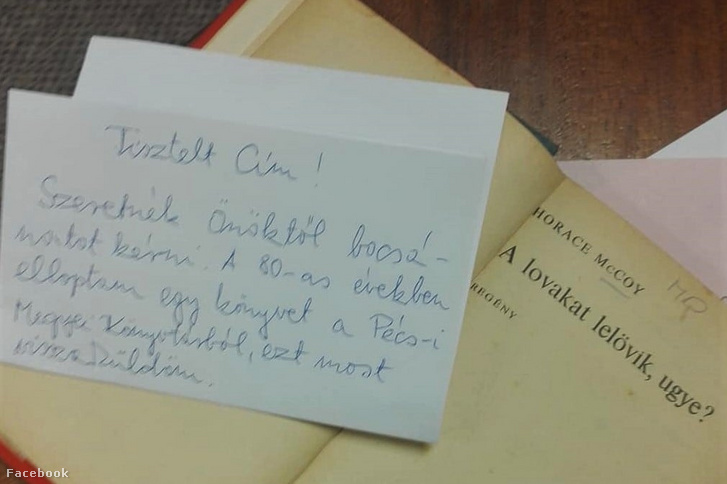 Tisztelt Cím!
Szeretnék Önöktől bocsá-
natot kérni. A 80-as években
elloptam egy könyvet a Pécs-i
Megyei Könyvtárból, ezt most
visszaküldöm.
HORACE McCOY
A lovakat lelövik, ugye?
REGÉNY
Facebook